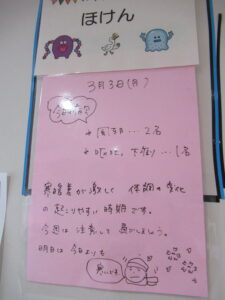 ほけん
3月3日(月)
今日の病気
風邪…2名
嘔吐、下痢…1名
寒暖差が激しく 体調の変化
の起こりやすい時期です。
今週は注意して 過ごしましょう。
明日は今日よりも
寒いです